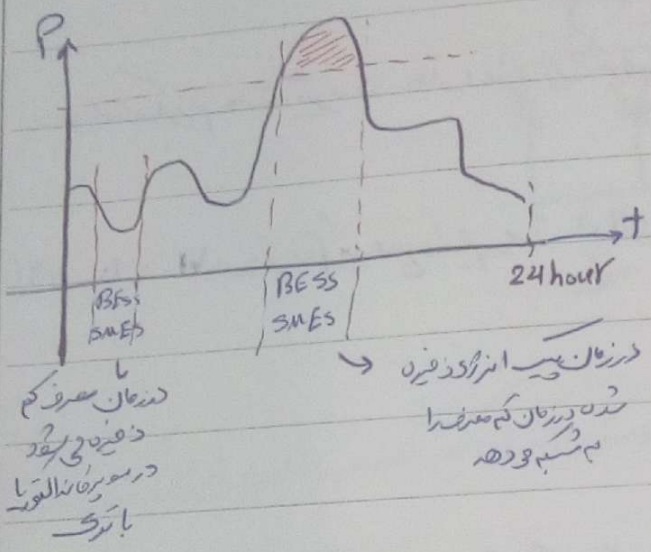 P
t
24 hour
BESS
SMES
BESS
SMES
یا
درزمان مصرف کم
ذخیره می شود
در سوپر
باتری
درزمان پیک انرژی ذخیره
شده درزمان کم مصرف را
به شبکه می دهد